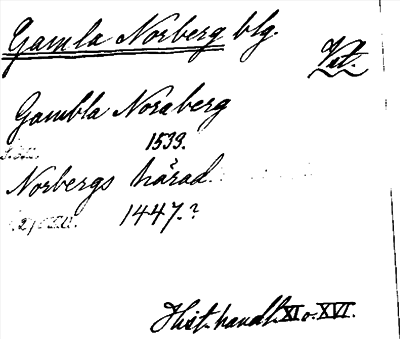 Gamla Norberg blg.
Vst.
Gambla Noraberg
1539.
Norbergs härad.
1447.?
Hist. handl. XI o. XVI.